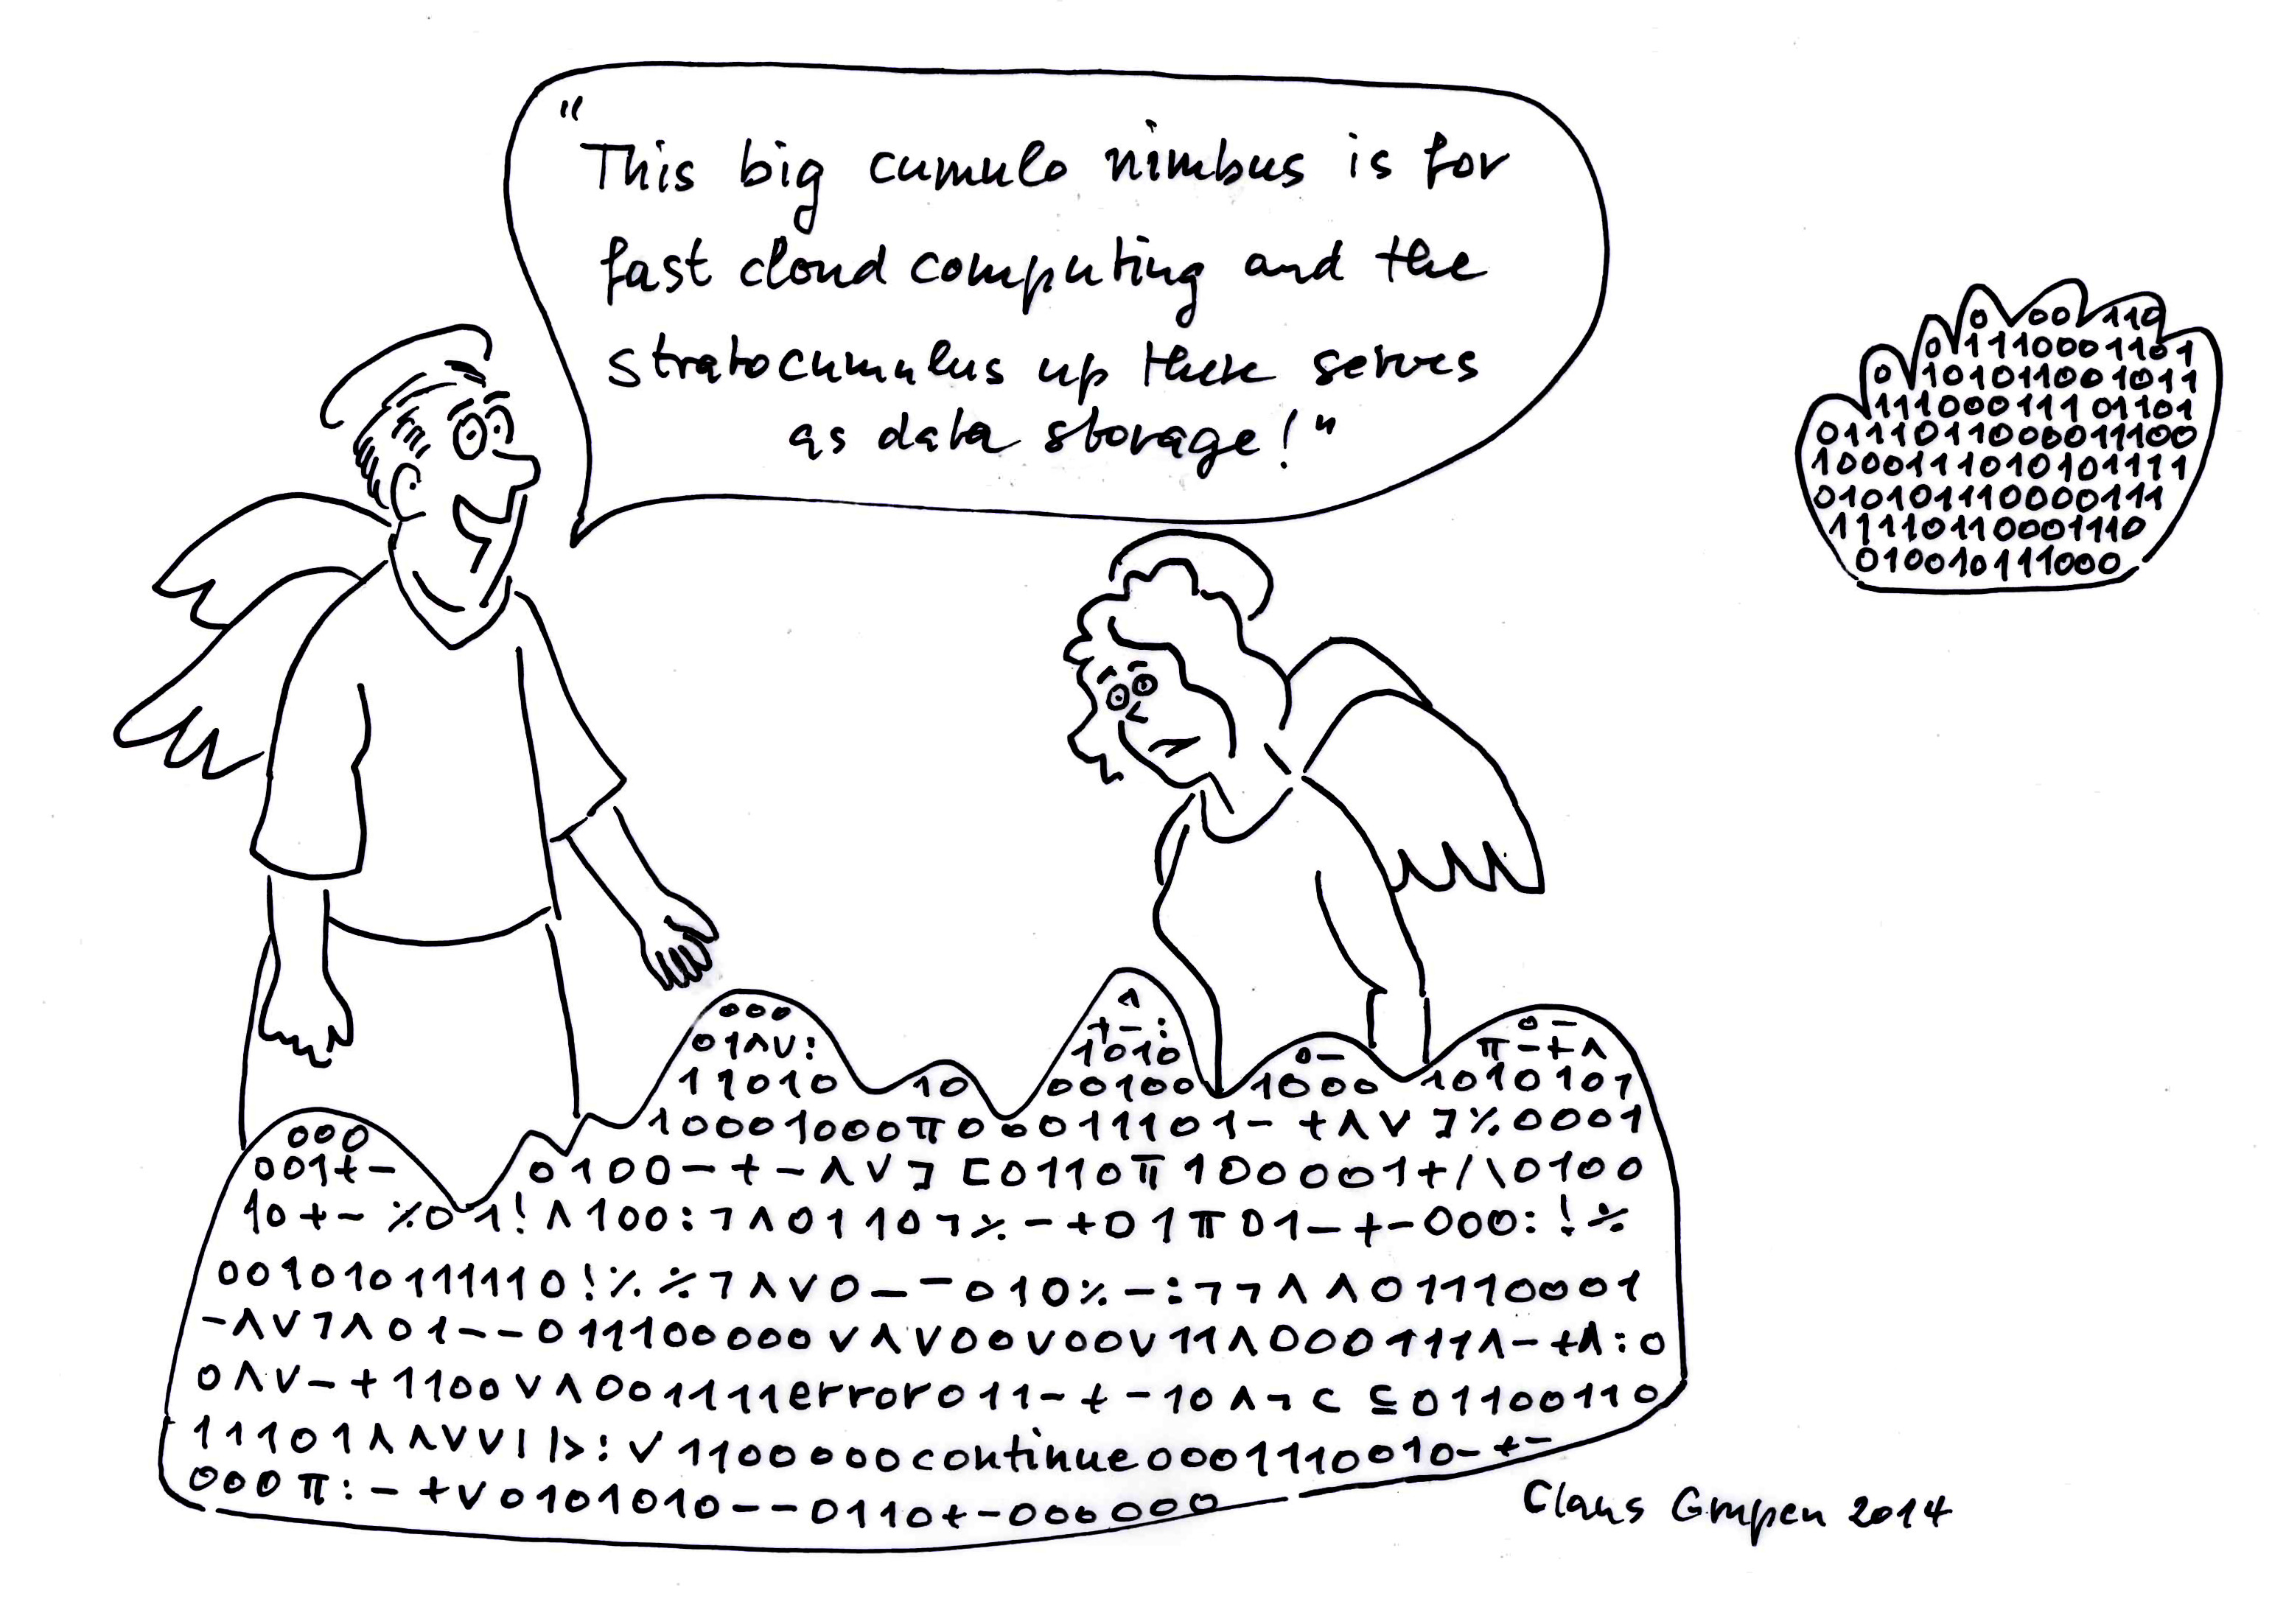 "
This big cumulo nimbus is for
fast cloud computing and the
stratocumulus up there serves
as data storage!"
0 00 110
0 1110001101
0 101011001011
111000111 01101
0111011000011100
1000111010101111
010101110000111
11110110001110
010010111000
000
01∧∨:
11010
10
∧
+-:
1010
00100
0-
1000
0-
π-+∧
1010101
10001000π000011101- +∧∨ ]%0001
000
001+-
0100-+-∧∨] [0110π100001+/\0100
10+- %01!∧100:¬∧01101¬%-+01π01-+-000:!÷
001010111110!%÷¬∧∨0--010%-:¬¬∧∧01110001
-∧∨¬∧01--011100000∨∧∨00∨00∨11∧000111∧-+∧:0
0∧∨-+1100∨∧001111error011-+-10∧¬⊂ ⊆01100110
11101∧∧∨∨||>:∨1100000continue0001110010-+-
000π:-+∨0101010--0110+-000000
Claus Grupen 2014